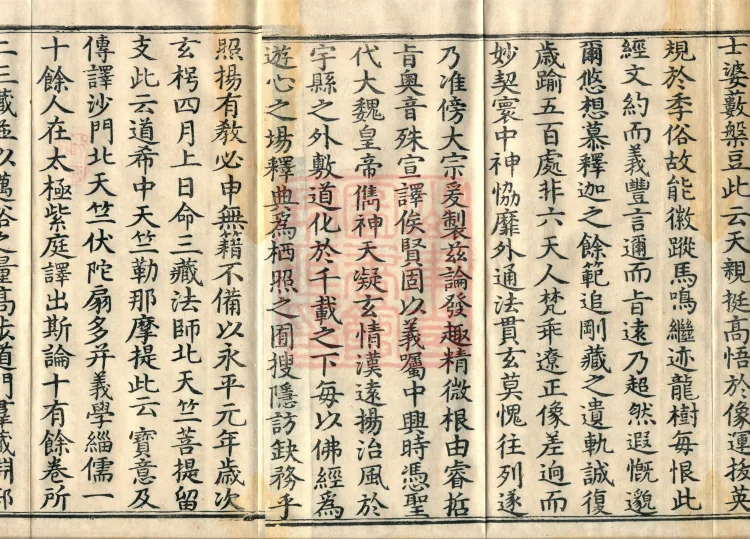 士婆藪槃豆此云天親挺高悟於像運拔英
規於季俗故能徽蹤馬鳴繼迹龍樹每恨此
經文約而義豐言邇而旨遠乃超然遐慨邈
爾悠想慕釋迦之餘範追剛藏之遺軌誠復
歲踰五百處非六天人梵乖遼正像差逈而
妙契寰中神協靡外通法貫玄莫愧往列遂
乃准傍大宗爰製茲論發趣精微根由睿哲
旨奧音殊宣譯俟賢固以義囑中興時憑聖
代大魏皇帝儁神天凝玄情漠遠揚治風於
宇縣之外敷道化於千載之下每以佛經為
遊心之場釋典為栖照之囿搜隱訪缺務乎
照揚有教必申無籍不備以永平元年歲次
玄枵四月上日命三藏法師北天竺菩提留
支此云道希中天竺勒那摩提此云寶意及
傳譯沙門北天竺伏陀扇多并義學緇儒一
十餘人在太極紫庭譯出斯論十有餘卷所
二三藏並以邁俗之量高步道門羣藏淵部